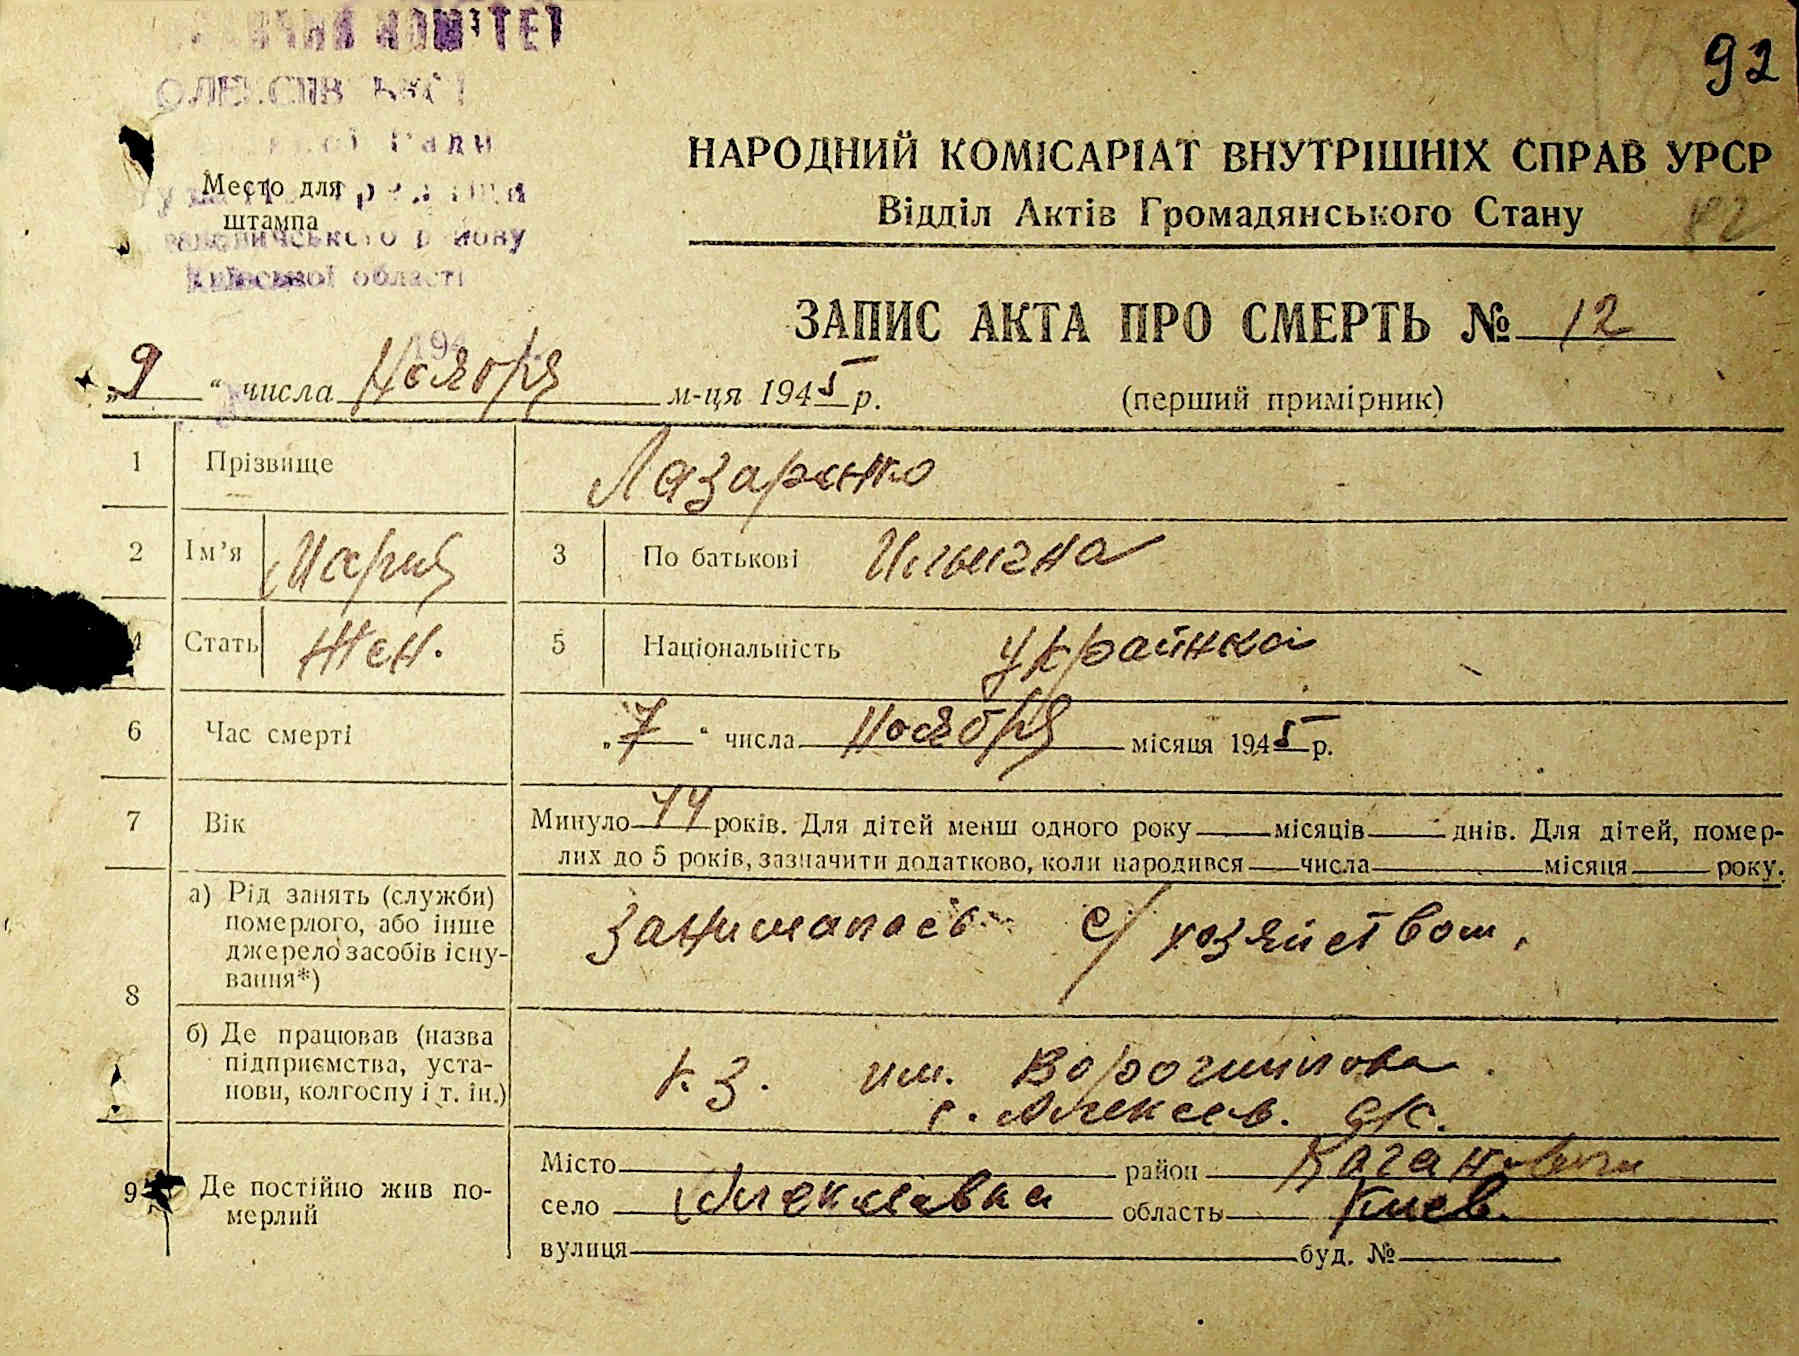 КОМІТЕТ
Ради
Место для
штампа
району
Київської області
92
НАРОДНИЙ КОМІСАРІАТ ВНУТРІШНІХ СПРАВ УРСР
Відділ Актів Громадянського Стану
42
ЗАПИС АКТА ПРО СМЕРТЬ № 12
(перший примірник)
„9“ числа Ноября м-ця 1945 р.
1 Прізвище Лазаренко
2 Ім’я Мария 3 По батькові Ильична
4 Стать Жен. 5 Національність украинка
6 Час смерті „7“ числа Ноября місяця 1945 р.
7 Вік Минуло 44 років. Для дітей менш одного року місяців днів. Для дітей, помер-
лих до 5 років, зазначити додатково, коли народився числа місяця року.
8 а) Рід занять (служби)
померлого, або інше
джерело засобів існу-
вання*)
Занималась с/хозяйством.
б) Де працював (назва
підприємства, уста-
нови, колгоспу і т. ін.)
к.з. им. Ворошилова
с. Алексеев.
9 Де постійно жив по-
мерлий
Місто район Каганович
село Алексеевка область Киев.
вулиця буд. №